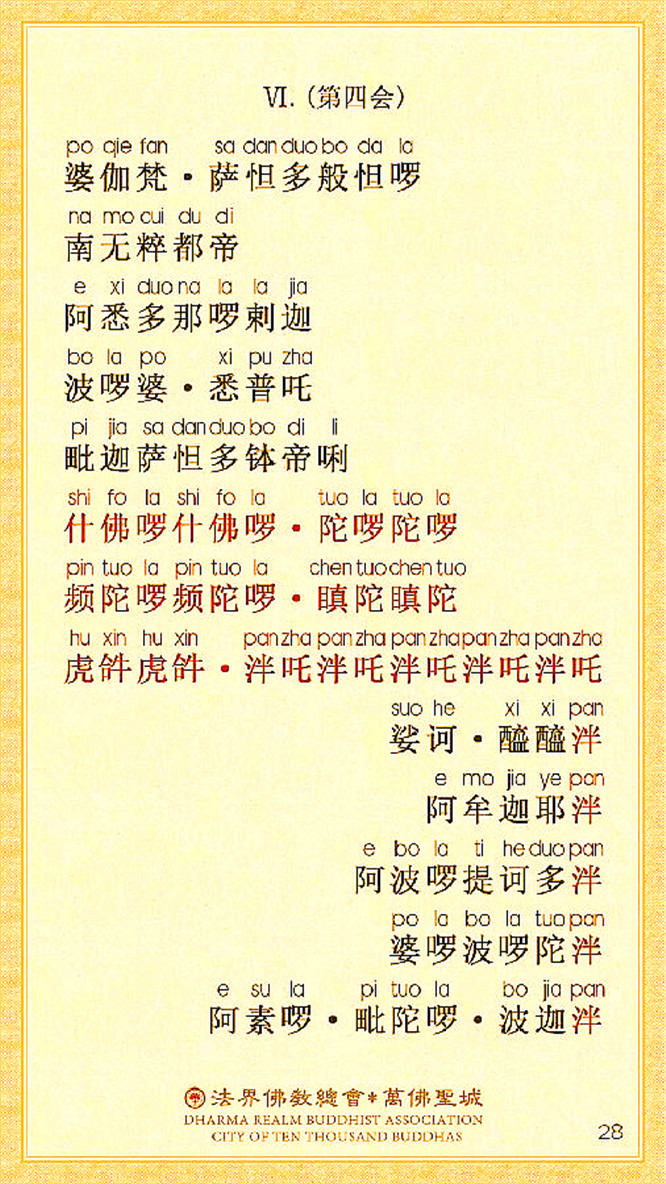 VI. (第四会)
po qie fan sa dan duo bo da la
婆伽梵・萨怛多般怛啰
na mo cui du di
南无粹都帝
e xi duo na la la jia
阿悉多那啰剌迦
bo la po xi pu zha
波啰婆・悉普吒
pi jia sa dan duo bo di li
毗迦萨怛多钵帝唎
shi fo la shi fo la tuo la tuo la
什佛啰什佛啰・陀啰陀啰
pin tuo la pin tuo la chen tuo chen tuo
频陀啰频陀啰・瞋陀瞋陀
hu xin hu xin pan zha pan zha pan zha pan zha pan zha
虎𤙖虎𤙖・泮吒泮吒泮吒泮吒泮吒
suo he xi xi pan
娑诃・醯醯泮
e mo jia ye pan
阿牟迦耶泮
e bo la ti he duo pan
阿波啰提诃多泮
po la bo la tuo pan
婆啰波啰陀泮
e su la pi tuo la bo jia pan
阿素啰・毗陀啰・波迦泮
法界佛教總會*萬佛聖城
DHARMA REALM BUDDHIST ASSOCIATION
CITY OF TEN THOUSAND BUDDHAS
28